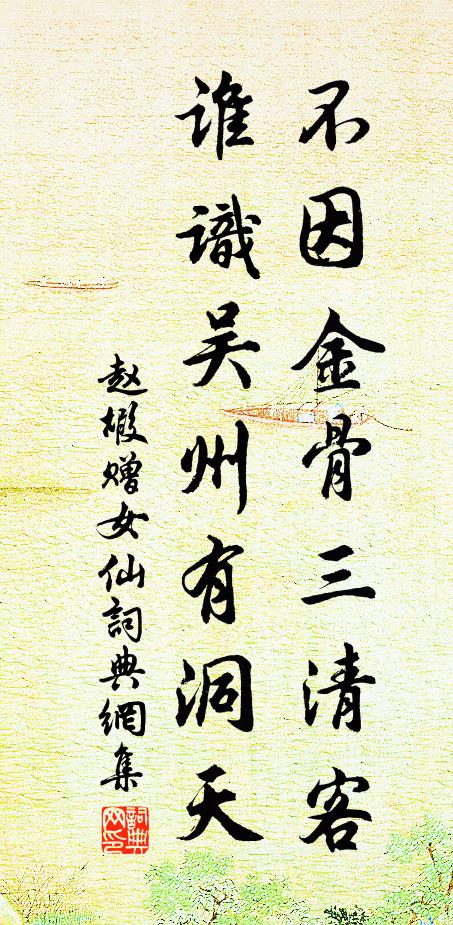 不因金骨三清客
谁識吴州有洞天
赵嘏赠女仙詞典網集
詞典网印